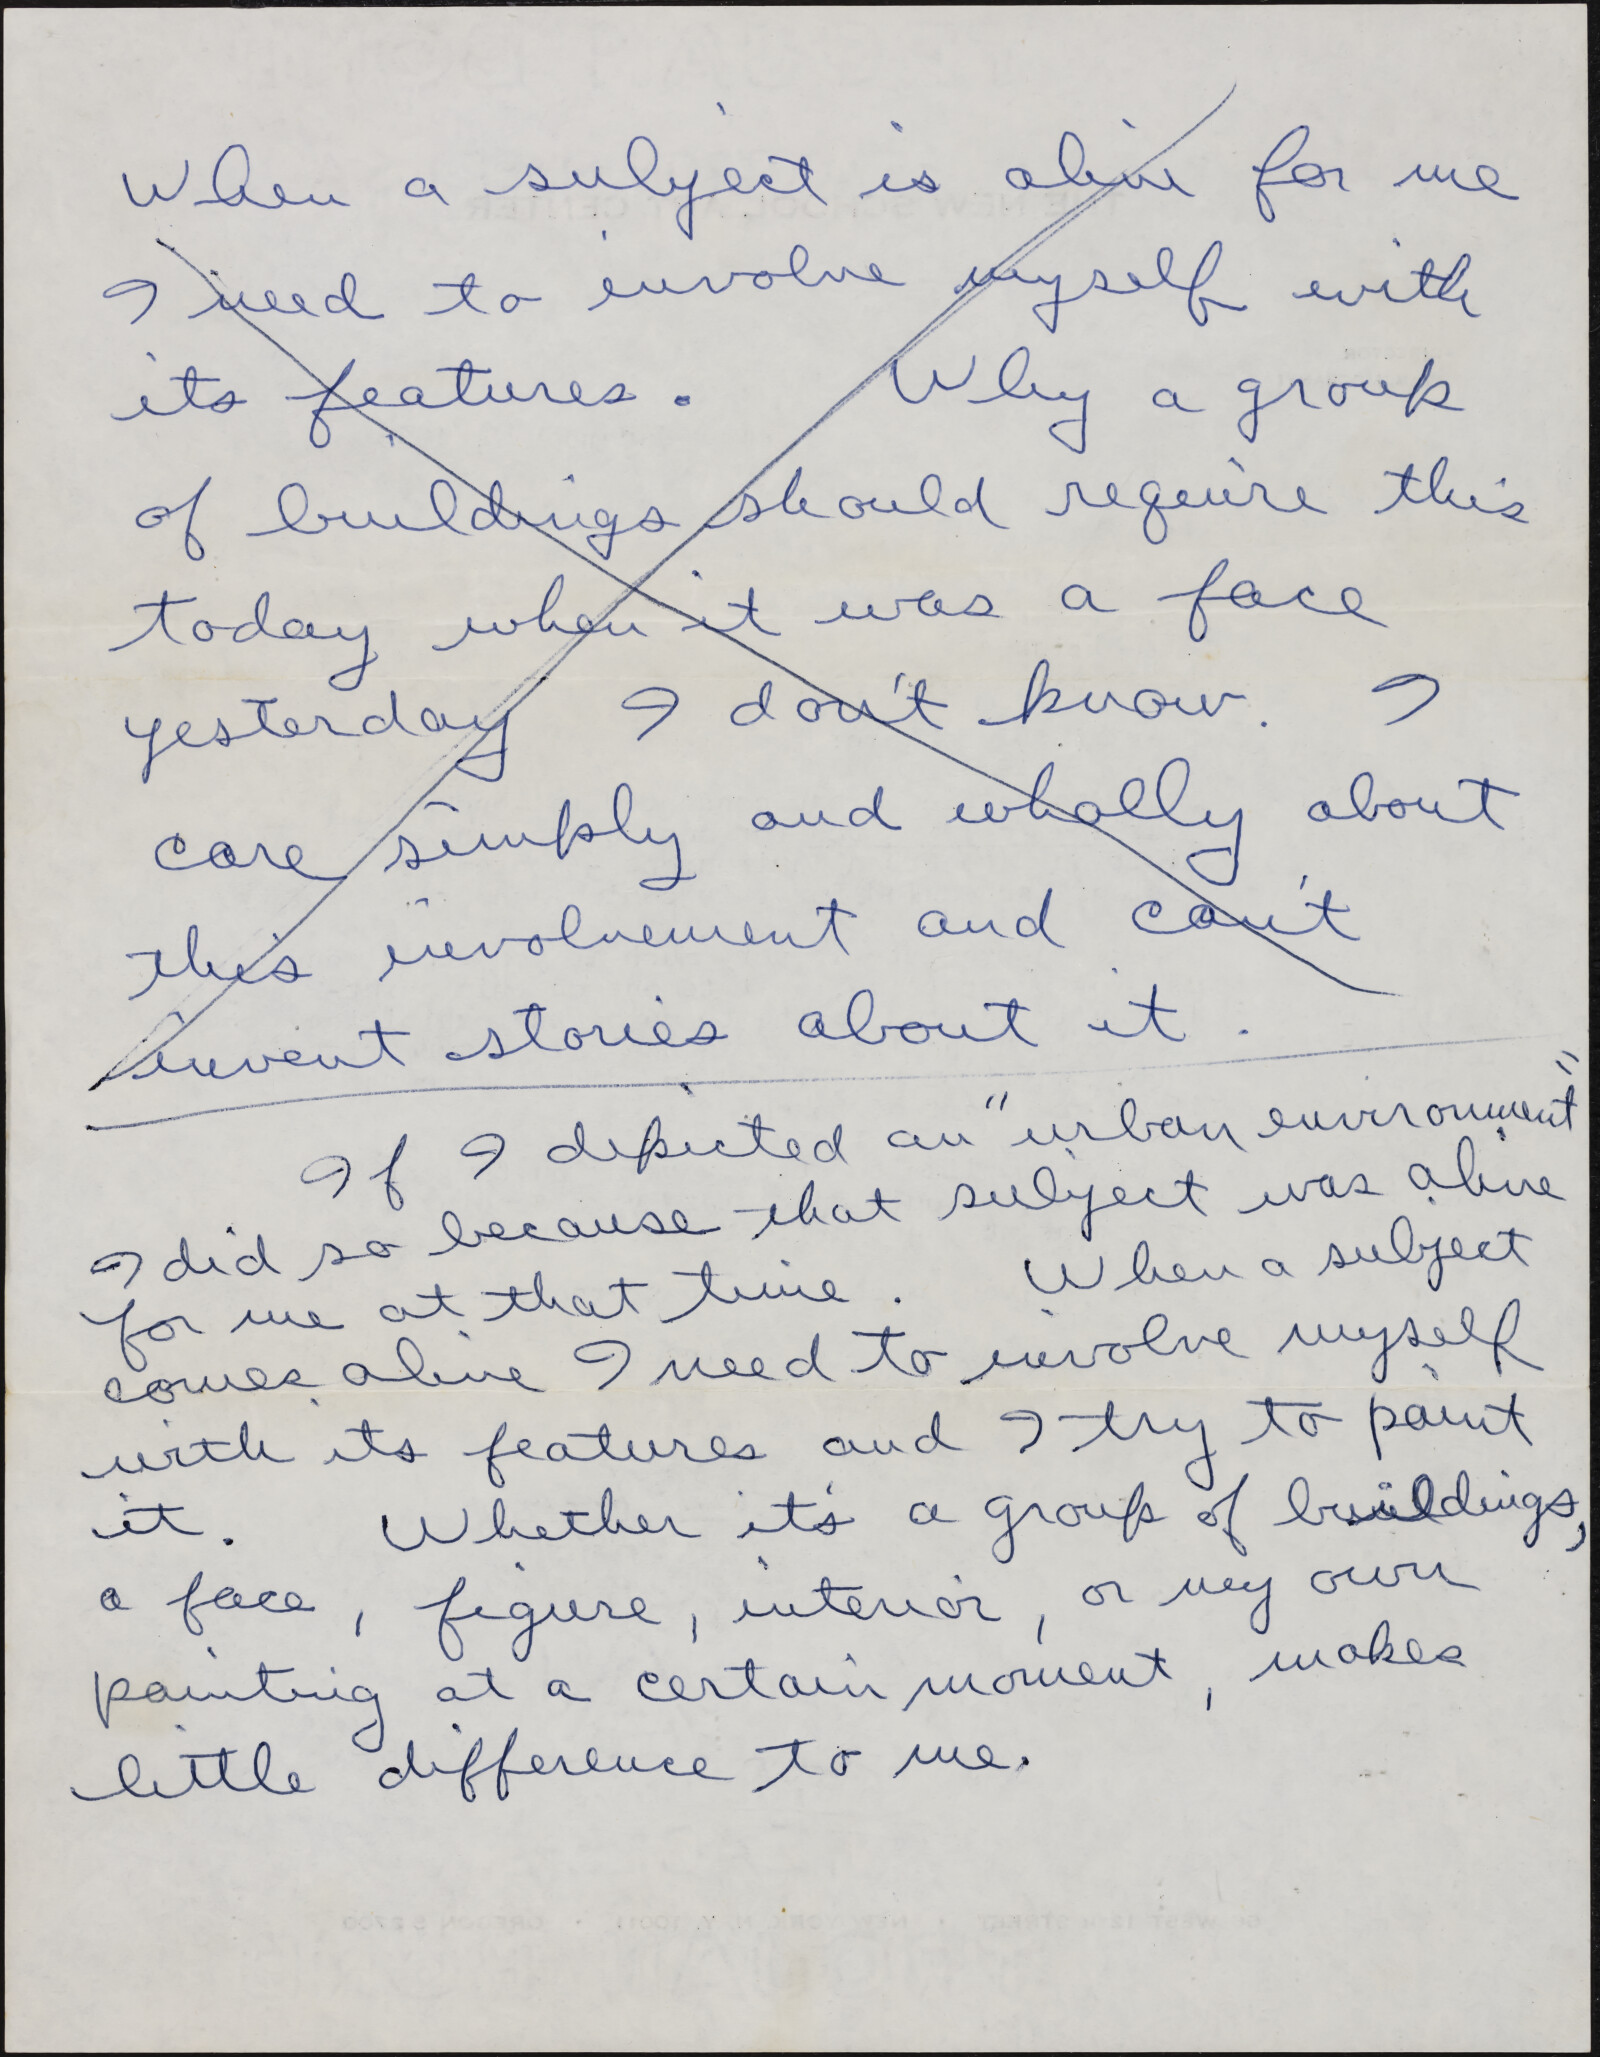 When a subject is alive for me
I need to involve myself with
its features. Why a group
of buildings should require this
today when it was a face
yesterday I don't know. I
care simply and wholly about
this involvement and can't
invent stories about it.
If I depicted an "urban environment"
I did so because that subject was alive
for me at that time. When a subject
comes alive I need to involve myself
with its features and I try to paint
it. Whether it's a group of buildings,
a face, figure, interior, or my own
painting at a certain moment, makes
little difference to me.